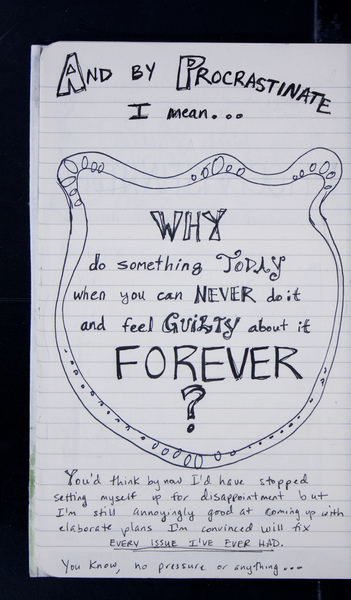 AND BY PROCRASTINATE
I mean...
WHY
do something TODAY
when you can NEVER do it
and feel GUILTY about it
FOREVER
?
You'd think by now I'd have stopped
setting myself up for disappointment but
I'm still annoyingly good at coming up with
elaborate plans I'm convinced will fix
EVERY ISSUE I'VE EVER HAD.
You know, no pressure or anything...